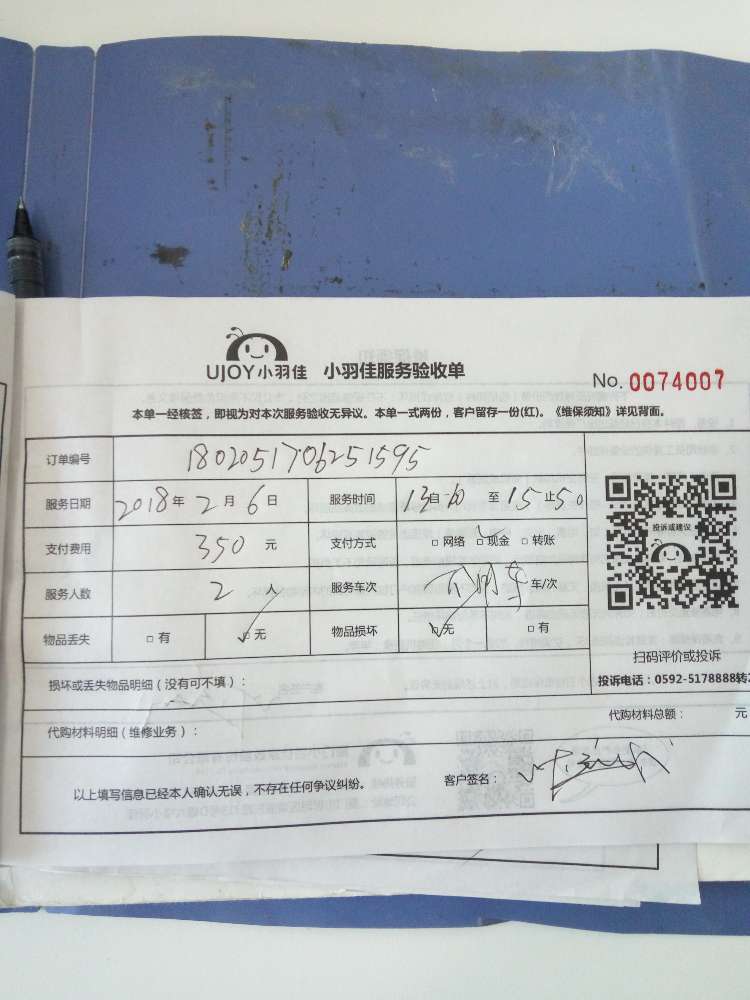 UJOY小羽佳 小羽佳服务验收单
No. 0074007
本单一经核签，即视为对本次服务验收无异议。本单一式两份，客户留存一份(红)。《维保须知》详见背面。
订单编号 1802051706251595
服务日期 2018年2月6日 服务时间 13自 至15止50
支付费用 350元 支付方式 □网络 □现金 □转账
服务人数 2人 服务车次 不用车 车/次
物品丢失 □有 □无 物品损坏 □无 □有
投诉或建议
扫码评价或投诉
投诉电话：0592-5178888转
损坏或丢失物品明细（没有可不填）：
代购材料总额： 元
代购材料明细（维修业务）：
以上填写信息已经本人确认无误，不存在任何争议纠纷。 客户签名：